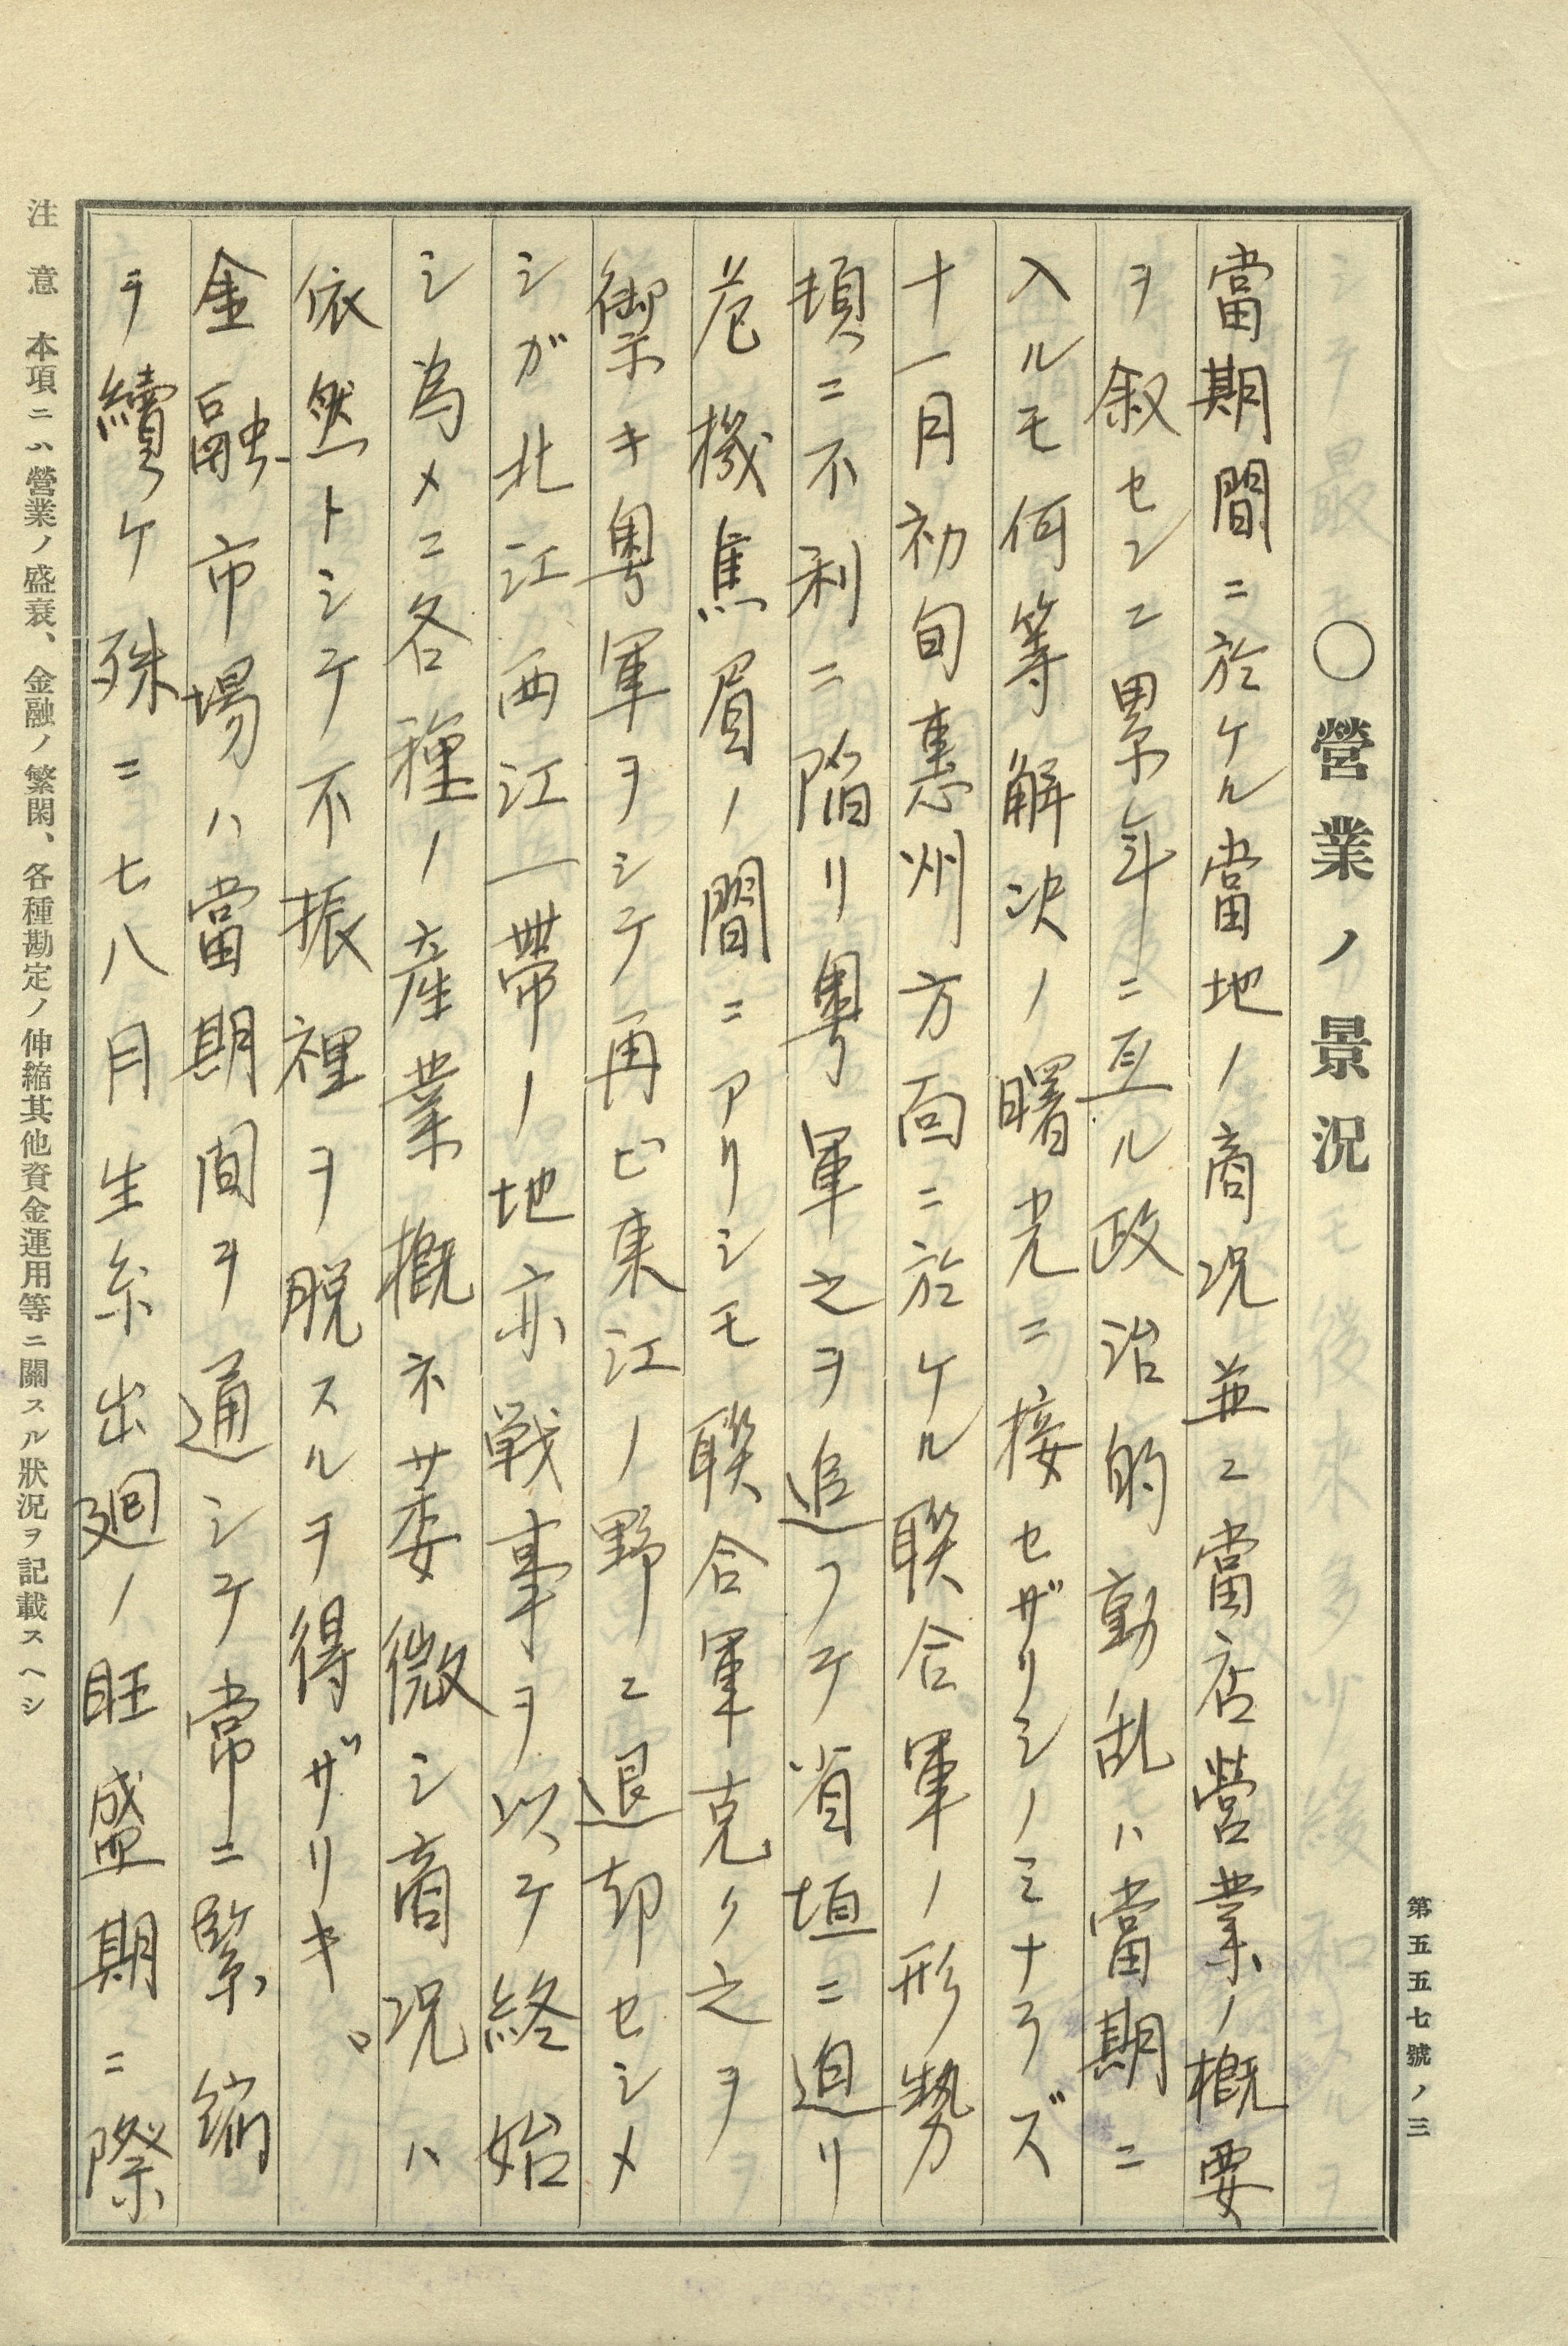 第五五七號ノ三
〇營業ノ景況
當期間ニ於ケル當地ノ商況並ニ當店營業ノ概要
ヲ叙センニ累年ニ亙ル政治的動乱ハ當期ニ
入ルモ何等解決ノ曙光ニ接セザリシノミナラズ
十一月初旬惠州方面ニ於ケル聯合軍ノ形勢
頓ニ不利ニ陥リ粤軍之ヲ追フテ省垣ニ迫リ
危機焦眉ノ間ニアリシモ聯合軍克ク之ヲ
禦キ粤軍ヲシテ再ビ東江ノ野ニ退却セシメ
シガ北江西江一帶ノ地亦戦事ヲ以テ終始
シ為メニ各種ノ産業概ネ萎微シ商况ハ
依然トシテ不振裡ヲ脱スルヲ得ザリキ。
金融市場ハ當期间ヲ通シテ常ニ緊縮
ヲ續ケ殊ニ七八月生糸出廻ノ旺盛期ニ際
注意 本項ニハ營業ノ盛衰、金融ノ繁閑、各種勘定ノ伸縮其他資金運用等ニ關スル狀況ヲ記載スヘシ